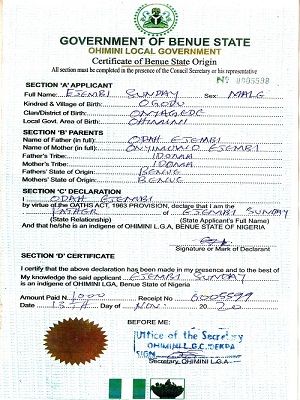 GOVERNMENT OF BENUE STATE
OHIMINI LOCAL GOVERNMENT
Certificate of Benue State Origin
All section must be completed in the presence of the Council Secretary or his representative
Nº 0005599
SECTION 'A' APPLICANT
Full Name: EJEMBI SUNDAY Sex: MALE
Kindred & Village of Birth: OGODU
Clan/District of Birth: ONYAGEDE
Local Govt. Area of Birth: OHIMINI
SECTION 'B' PARENTS
Name of Father (in full): ODAH EJEMBI
Name of Mother (in full): EJEMBI
Father's Tribe: IDOMA
Mother's Tribe: IDOMA
Fathers' State of Origin: BENUE
Mothers' State of Origin: BENUE
SECTION 'C' DECLARATION
I ODAH EJEMBI
by virtue of the OATHS ACT, 1963 PROVISION, declare that I am the
FATHER of EJEMBI SUNDAY
(State Relationship) (State Applicant's Full Name)
And that he/she is an indigene of OHIMINI L.G.A, BENUE STATE OF NIGERIA
Signature or Mark of Declarant
SECTION 'D' CERTIFICATE
I certify that the above declaration has been made in my presence and to the best of
My knowledge the said applicant EJEMBI SUNDAY
is an indigene of OHIMINI L.G.A, Benue State of Nigeria
Amount Paid N 1000 Receipt No 0005599
Date 13TH Day of NOV. 2020
BEFORE ME:
Office of the Secretary
OHIMINI L.G.C. IDEKPA
SIGN
Secretary, OHIMINI L.G.A